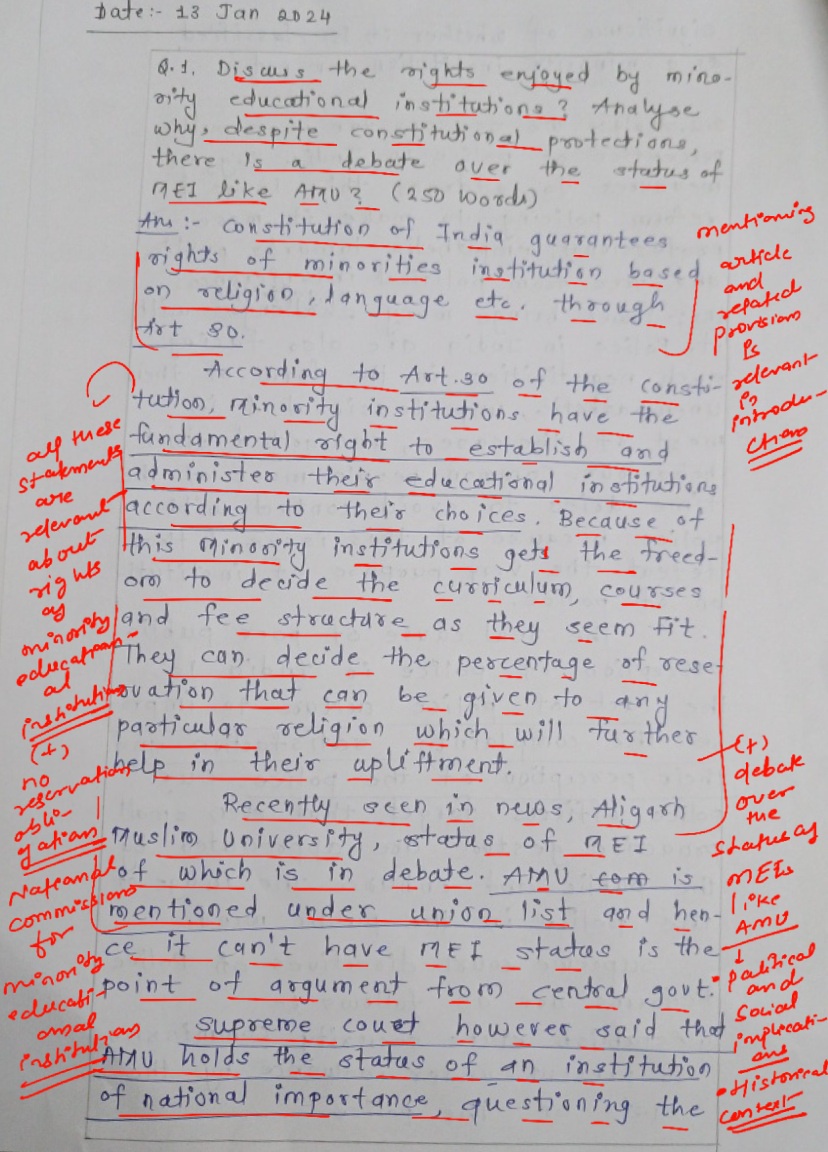 Date:- 13 Jan 2024
Q.1. Discuss the rights enjoyed by mino-
rity educational institutions? Analyse
why, despite constitutional protections,
there is a debate over the status of
MEI like AMU? (250 words)
Ans:- Constitution of India guarantees
rights of minorities institution based
on religion, language etc. through
Art 30.
mentioning
article
and
related
provision
is
relevant
in
introdu-
ction
According to Art.30 of the consti-
tution, minority institutions have the
fundamental right to establish and
administer their educational institutions
according to their choices. Because of
this minority institutions gets the freed-
om to decide the curriculum, courses
and fee structure as they seem fit.
They can decide the percentage of rese-
rvation that can be given to any
particular religion which will further
help in their upliftment.
all these
statements
are
relevant
about
rights
of
minority
education-
al
institution
(+)
no
reservation
obli-
gation
National
commission
for
minority
educati-
onal
institution
Recently seen in news, Aligarh
Muslim University, status of MEI
of which is in debate. AMU is
mentioned under union list and hen-
ce it can't have MEI status is the
point of argument from central govt.
(+)
debate
over
the
status of
MEIs
like
AMU
• political
and
social
implicati-
ons
• Historical
context
Supreme court however said that
AMU holds the status of an institution
of national importance, questioning the